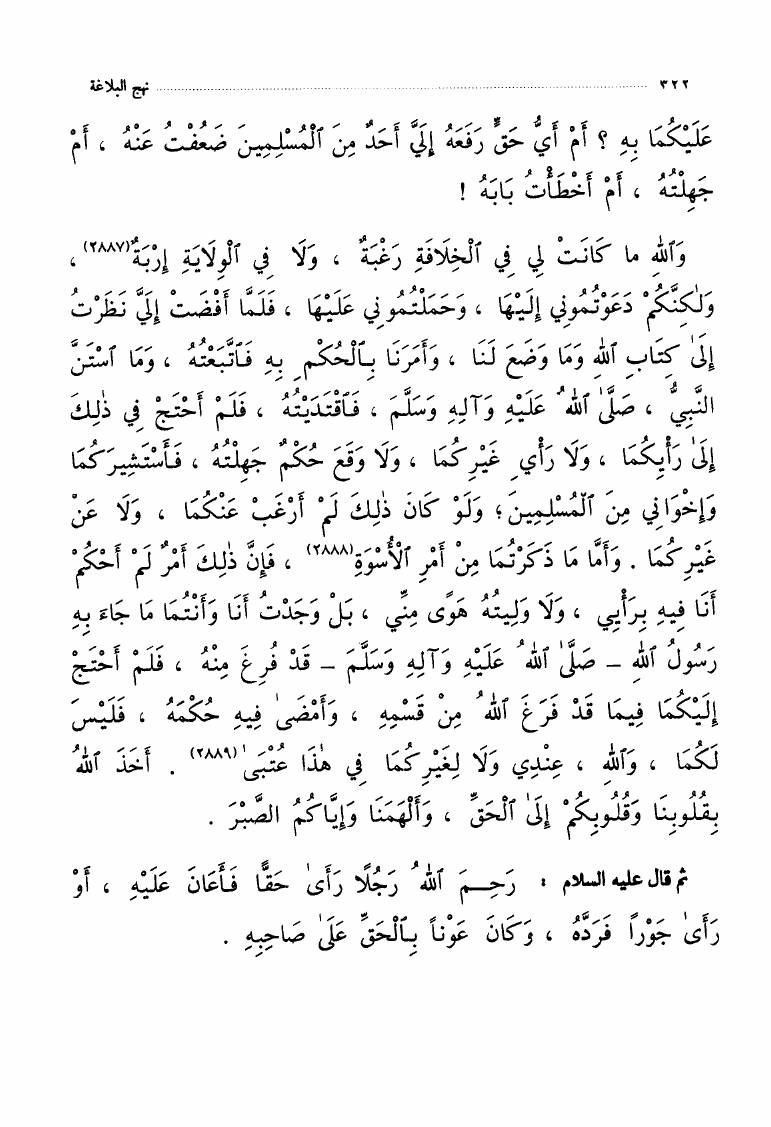 ٣٢٢ ........ نهج البلاغة
عَلَيْكُمَا بِهِ ؟ أَمْ أَيُّ حَقٍّ رَفَعَهُ إِلَيَّ أَحَدٌ مِنَ ٱلْمُسْلِمِينَ ضَعُفْتُ عَنْهُ ، أَمْ
جَهِلْتُهُ ، أَمْ أَخْطَأْتُ بَابَهُ !
وَٱللهِ ما كَانَتْ لِي فِي ٱلْخِلَافَةِ رَغْبَةٌ ، وَلَا فِي ٱلْوِلَايَةِ إِرْبَةٌ(٢٨٨٧) ،
وَلٰكِنَّكُمْ دَعَوْتُمُونِي إِلَيْهَا ، وَحَمَلْتُمُونِي عَلَيْهَا ، فَلَمَّا أَفْضَتْ إِلَيَّ نَظَرْتُ
إِلَىٰ كِتَابِ ٱللهِ وَمَا وَضَعَ لَنَا ، وَأَمَرَنَا بِٱلْحُكْمِ بِهِ فَٱتَّبَعْتُهُ ، وَمَا ٱسْتَنَّ
النَّبِيُّ ، صَلَّىٰ ٱللهُ عَلَيْهِ وَآلِهِ وَسَلَّمَ ، فَٱقْتَدَيْتُهُ ، فَلَمْ أَحْتَجْ فِي ذٰلِكَ
إِلَىٰ رَأْيِكُمَا ، وَلَا رَأْيِ غَيْرِكُمَا ، وَلَا وَقَعَ حُكْمٌ جَهِلْتُهُ ، فَأَسْتَشِيرَكُمَا
وَإِخْوَانِي مِنَ ٱلْمُسْلِمِينَ ؛ وَلَوْ كَانَ ذٰلِكَ لَمْ أَرْغَبْ عَنْكُمَا ، وَلَا عَنْ
غَيْرِكُمَا . وَأَمَّا مَا ذَكَرْتُمَا مِنْ أَمْرِ ٱلْأُسْوَةِ(٢٨٨٨) ، فَإِنَّ ذٰلِكَ أَمْرٌ لَمْ أَحْكُمْ
أَنَا فِيهِ بِرَأْيِي ، وَلَا وَلِيتُهُ هَوًى مِنِّي ، بَلْ وَجَدْتُ أَنَا وَأَنْتُمَا مَا جَاءَ بِهِ
رَسُولُ ٱللهِ - صَلَّىٰ ٱللهُ عَلَيْهِ وَآلِهِ وَسَلَّمَ - قَدْ فُرِغَ مِنْهُ ، فَلَمْ أَحْتَجْ
إِلَيْكُمَا فِيمَا قَدْ فَرَغَ ٱللهُ مِنْ قَسْمِهِ ، وَأَمْضَىٰ فِيهِ حُكْمَهُ ، فَلَيْسَ
لَكُمَا ، وَٱللهِ ، عِنْدِي وَلَا لِغَيْرِكُمَا فِي هٰذَا عُتْبَىٰ(٢٨٨٩) . أَخَذَ ٱللهُ
بِقُلُوبِنَا وَقُلُوبِكُمْ إِلَىٰ ٱلْحَقِّ ، وَأَلْهَمَنَا وَإِيَّاكُمُ الصَّبْرَ .
ثم قال عليه السلام : رَحِمَ ٱللهُ رَجُلًا رَأَىٰ حَقًّا فَأَعَانَ عَلَيْهِ ، أَوْ
رَأَىٰ جَوْراً فَرَدَّهُ ، وَكَانَ عَوْناً بِٱلْحَقِّ عَلَىٰ صَاحِبِهِ .